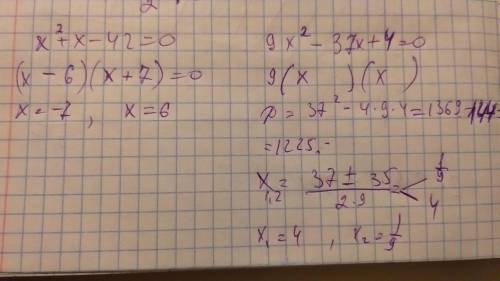 x² + x - 42 = 0
(x - 6)(x + 7) = 0
x = -7, x = 6
9x² - 37x + 4 = 0
9(x )(x )
D = 37² - 4·9·4 = 1369 - 144 =
= 1225.-
x₁,₂ = (37 ± 35)/(2·9) = < 1/9
4
x₁ = 4, x₂ = 1/9